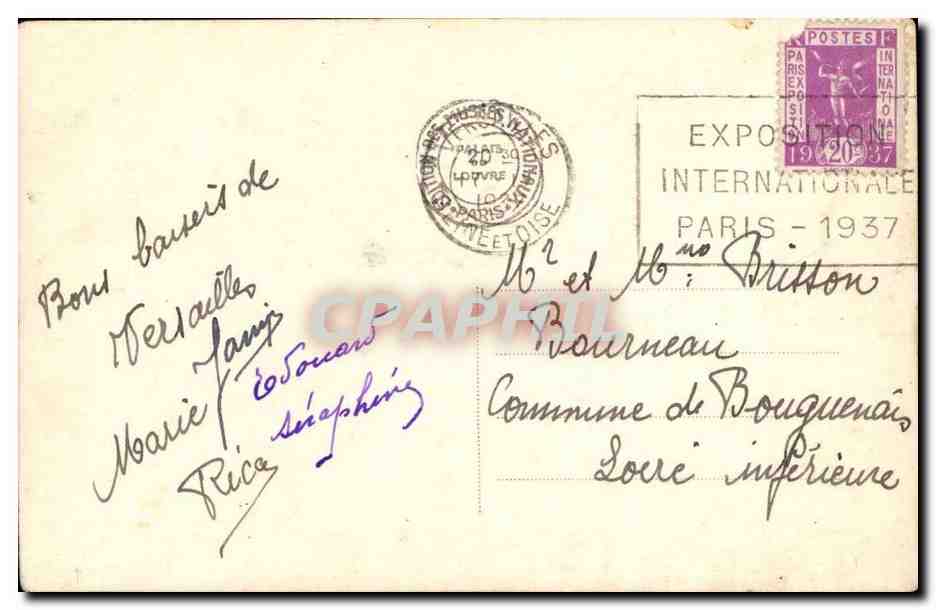 Bons baisers de
Versailles
Marie
Edouard
Séraphine
Rica
POSTES
PARIS EXPOSITION
INTERNATIONALE
1937
20
EXPOSITION
INTERNATIONALE
PARIS - 1937
VERSAILLES
SEINE ET OISE
20 30
EDITION DES MUSEES NATIONAUX
PALAIS
DU
LOUVRE
PARIS
Mr et Mme Brisson
Bourneau
Commune de Bouguenais
Loire inférieure
CPAPHIL